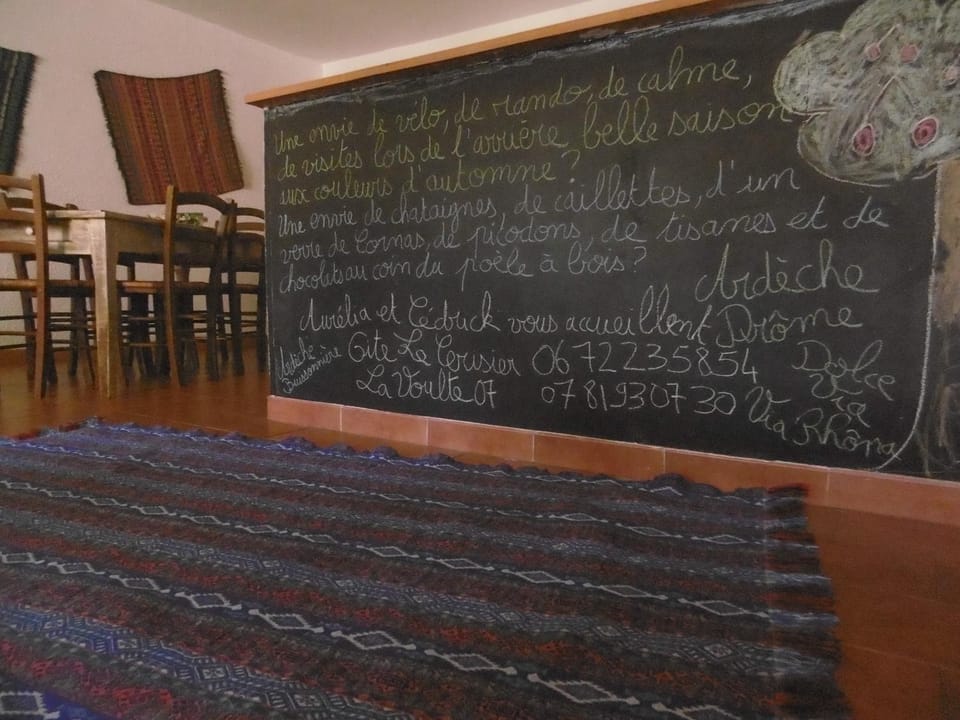 Une envie de vélo, de rando, de calme,
de visites lors de l'arrière belle saison
aux couleurs d'automne?
Une envie de chataignes, de caillettes, d'un
verre de Cornas, de picodons, de tisanes et de
chocolats au coin du poêle à bois?
Aurélia et Cédrick vous accueillent
Gite Le Cerisier 06 72 23 58 54
La Voulte 07 07 81 93 07 30
Ardèche
Buissonnière
Ardèche
Drôme
Dolce
Via
Via Rhôna